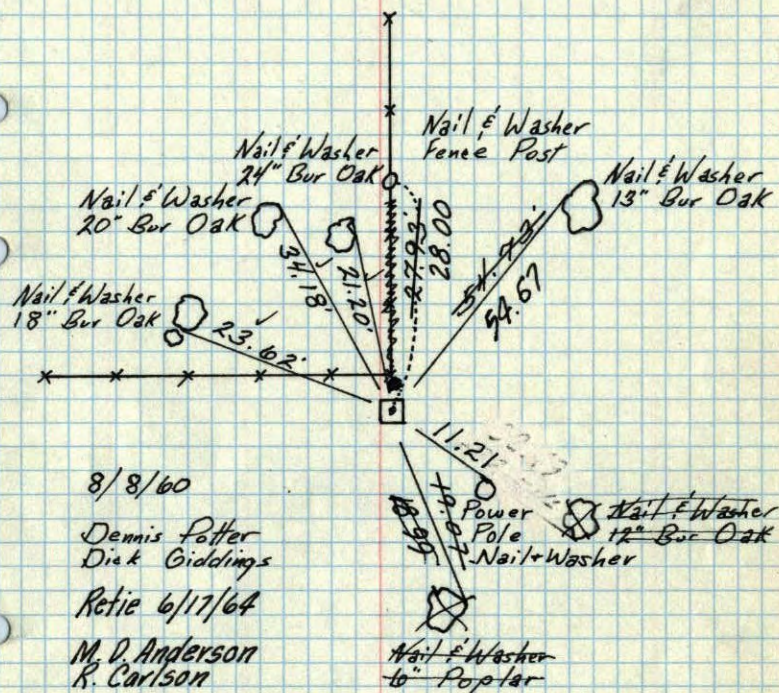 Nail & Washer
Fence Post
Nail & Washer
24" Bur Oak
Nail & Washer
13" Bur Oak
Nail & Washer
20" Bur Oak
Nail & Washer
18" Bur Oak
34.18'
21.20'
27.93'
28.00
54.73'
54.67
23.62'
11.21
18.99
19.07
Power
Pole
Nail + Washer
Nail & Washer
12" Bur Oak
Nail & Washer
6" Poplar
8/8/60
Dennis Potter
Dick Giddings
Retie 6/17/64
M. D. Anderson
R. Carlson